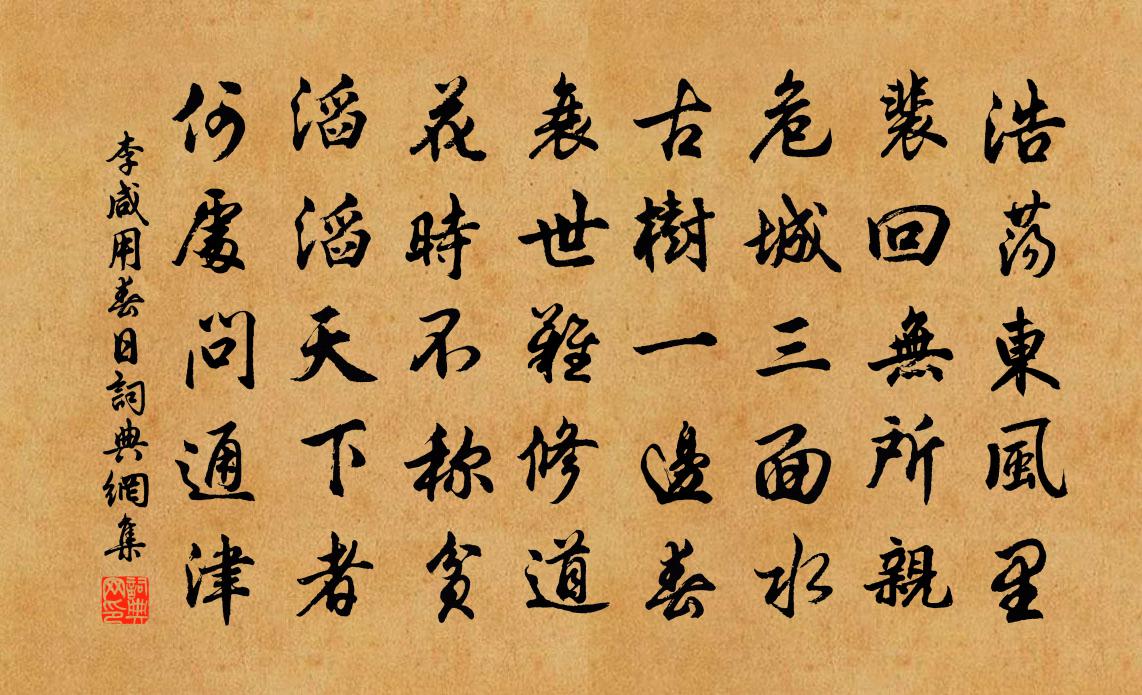 浩荡東風里
裴回無所親
危城三面水
古樹一邊春
衰世難修道
花時不称貧
滔滔天下者
何處問通津
李咸用春日詞典網集
詞典网印